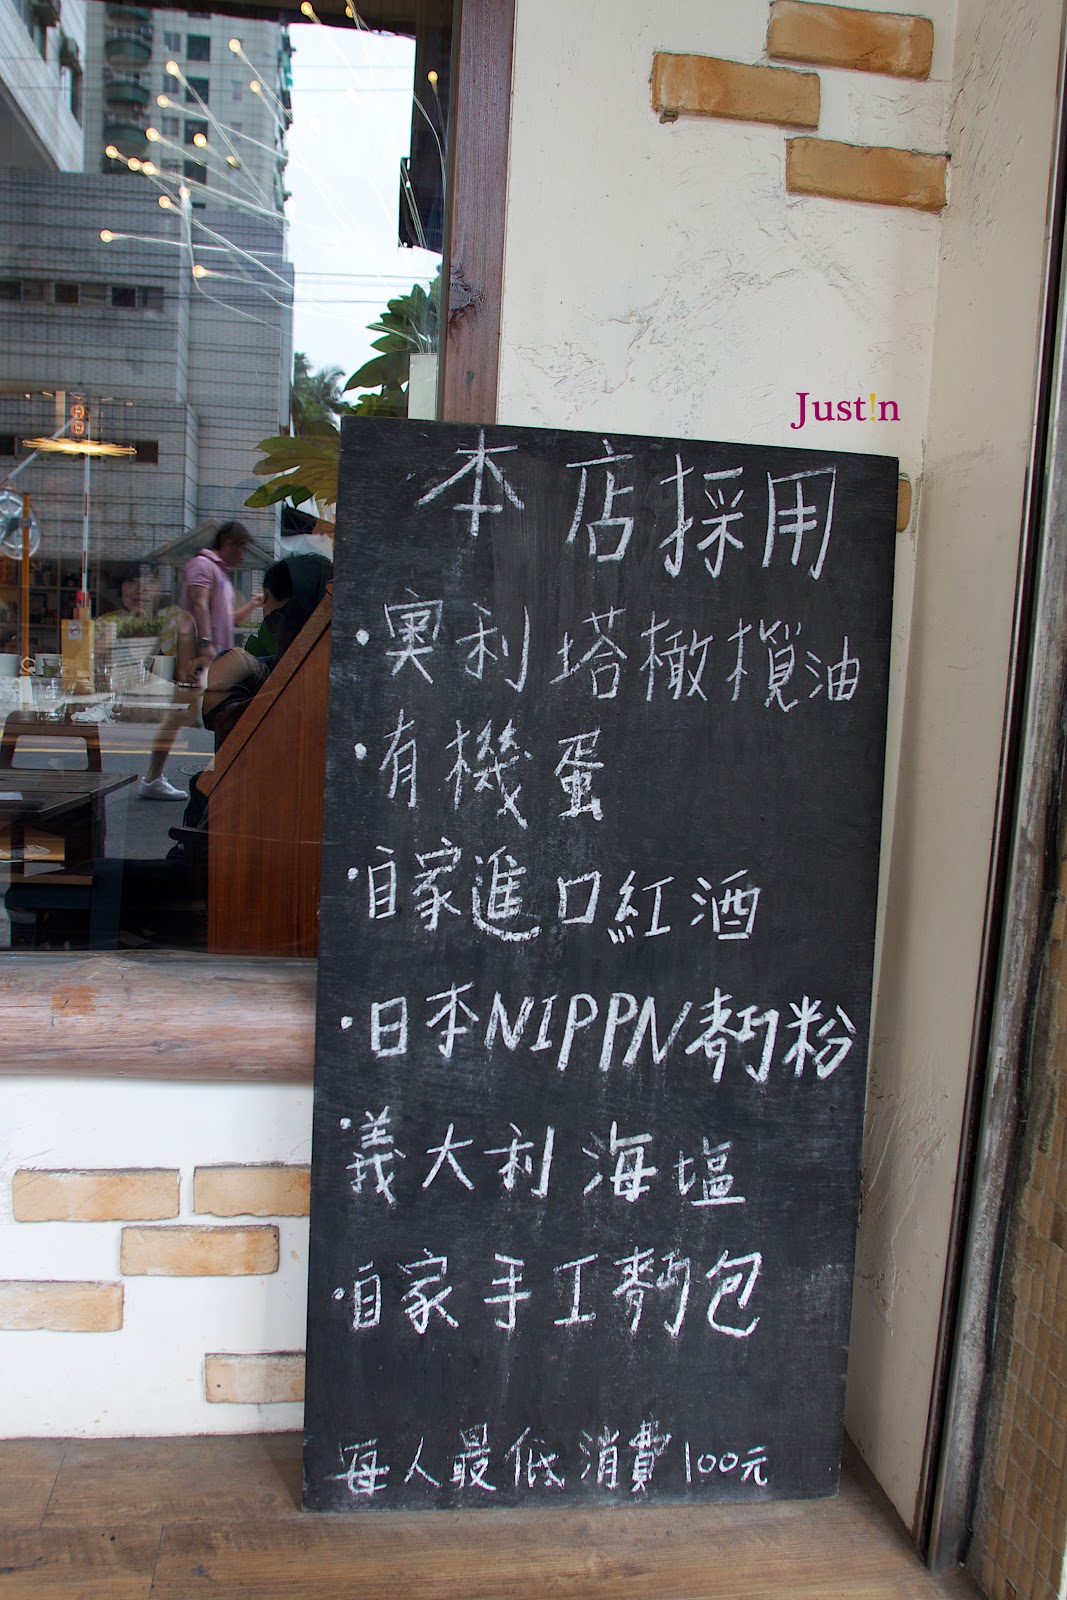 Just!n
本店採用
·奧利塔橄欖油
·有機蛋
·自家進口紅酒
·日本NIPPN麵粉
·義大利海塩
·自家手工麵包
每人最低消費100元